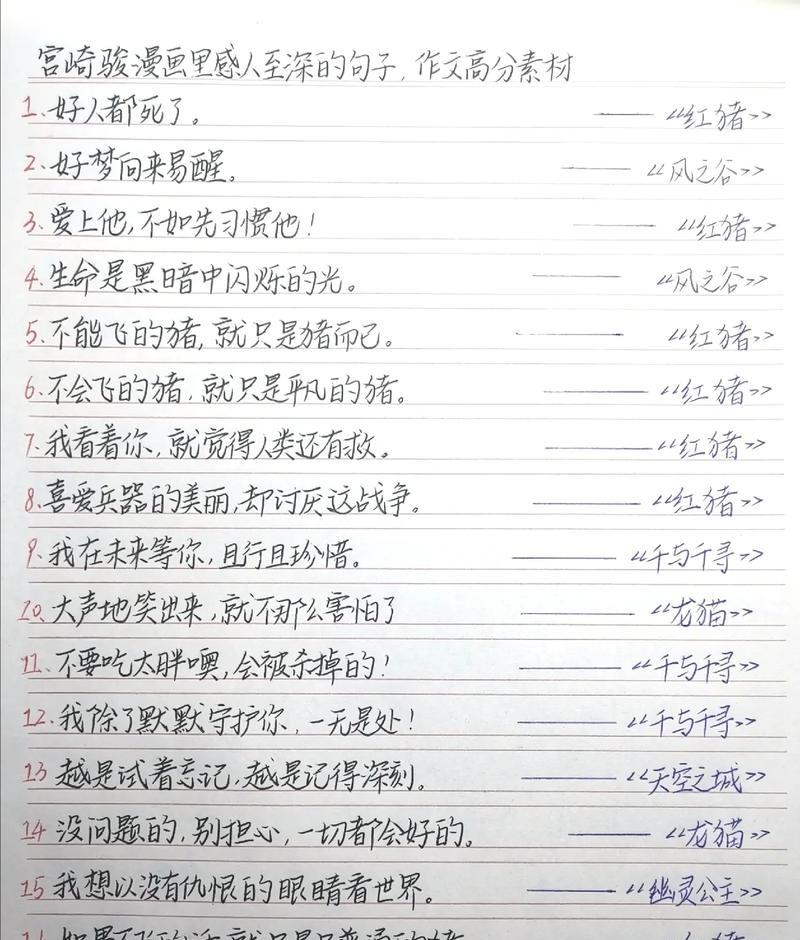 宫崎骏漫画里感人至深的句子,作文高分素材
1.好人都死了。——《红猪》
2.好梦向来易醒。——《风之谷》
3.爱上他,不如先习惯他!——《红猪》
4.生命是黑暗中闪烁的光。——《风之谷》
5.不能飞的猪,就只是猪而已。——《红猪》
6.不会飞的猪,就只是平凡的猪。——《红猪》
7.我看着你,就觉得人类还有救。——《红猪》
8.喜爱兵器的美丽,却讨厌这战争。——《红猪》
9.我在未来等你,且行且珍惜。——《千与千寻》
10.大声地笑出来,就不那么害怕了——《龙猫》
11.不要吃太胖噢,会被杀掉的!——《千与千寻》
12.我除了默默守护你,一无是处!——《千与千寻》
13 越是试着忘记,越是记得深刻。——《天空之城》
14 没问题的,别担心,一切都会好的。——《龙猫》
15 我想以没有仇恨的眼睛看世界。——《幽灵公主》